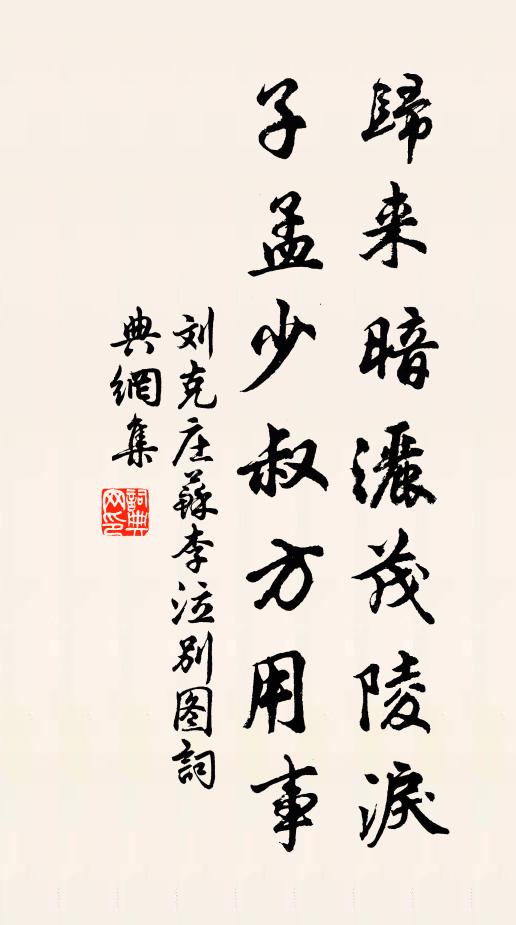 歸来暗灑茂陵淚
子孟少叔方用事
刘克庄蘇李泣别图詞
典網集
詞典网印